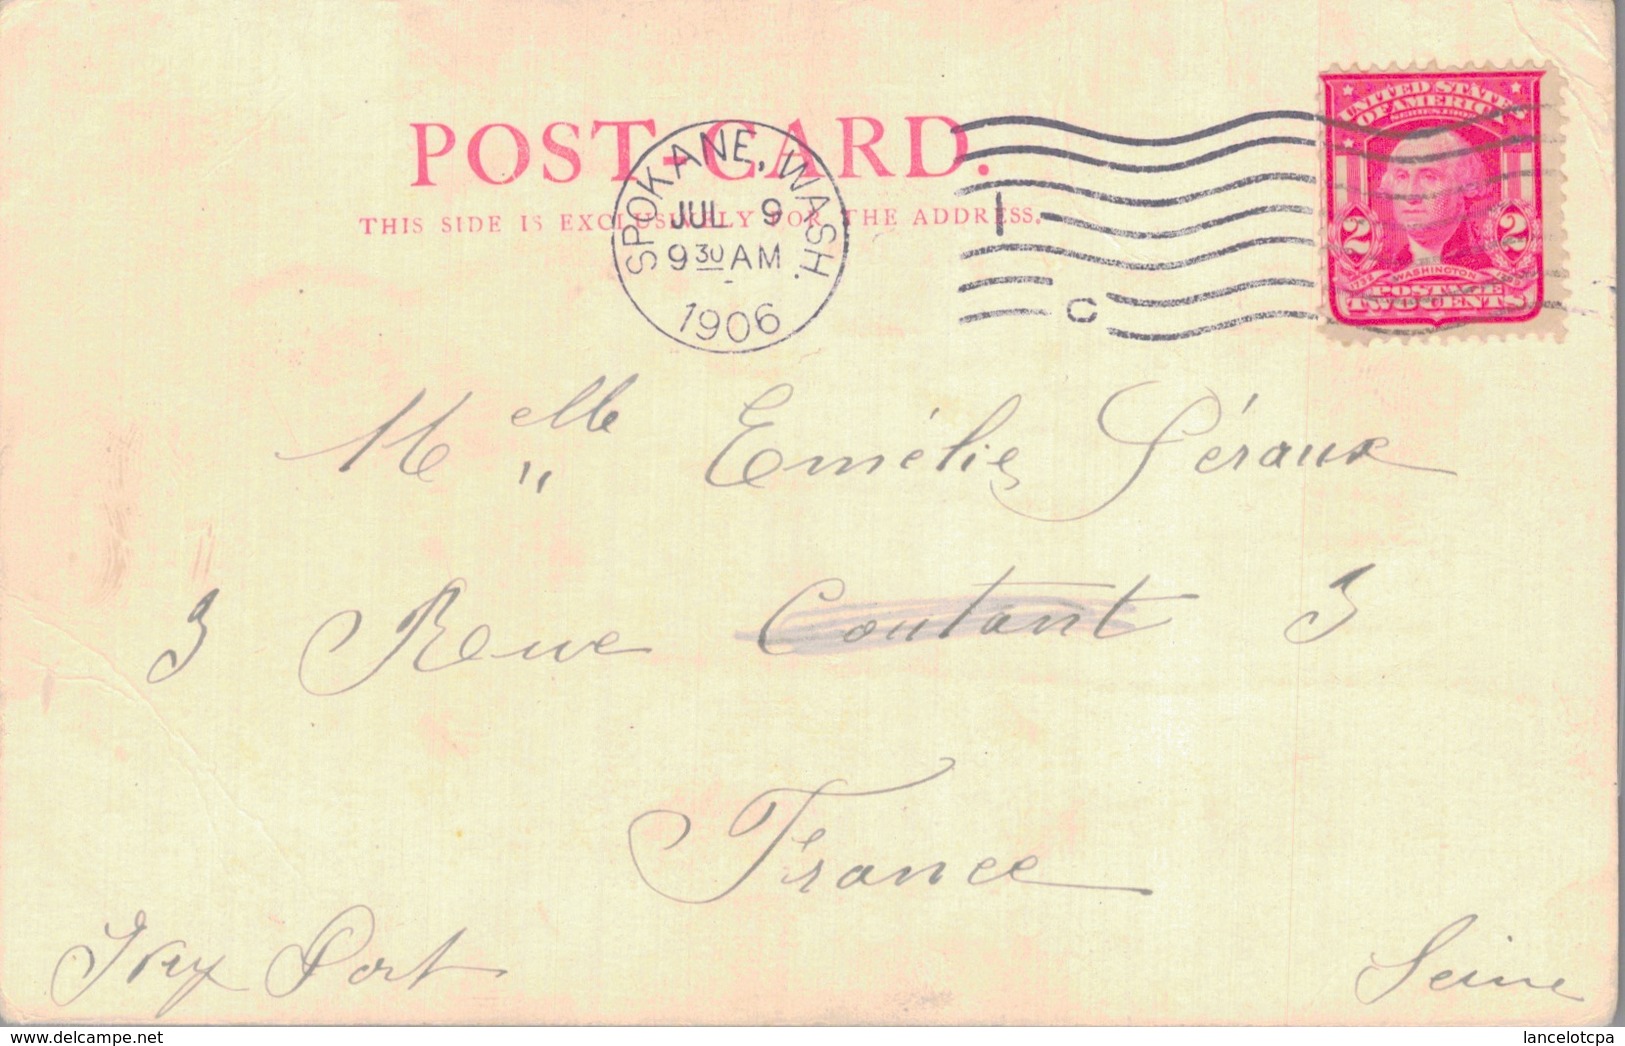 POST-CARD.
THIS SIDE IS EXCLUSIVELY FOR THE ADDRESS.
SPOKANE, WASH.
JUL 9
9 30 AM
1906
C
UNITED STATES
OF AMERICA
SERIES 1902
2 2
WASHINGTON
POSTAGE
TWO CENTS
Melle Emélie Géraux
3 Rue Coutant 3
France
Ivry Port Seine
www.delcampe.net lancelotcpa